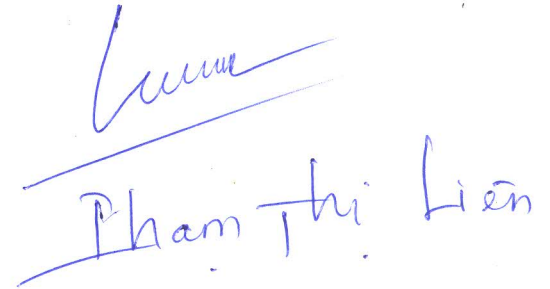 Phạm Thị Liên